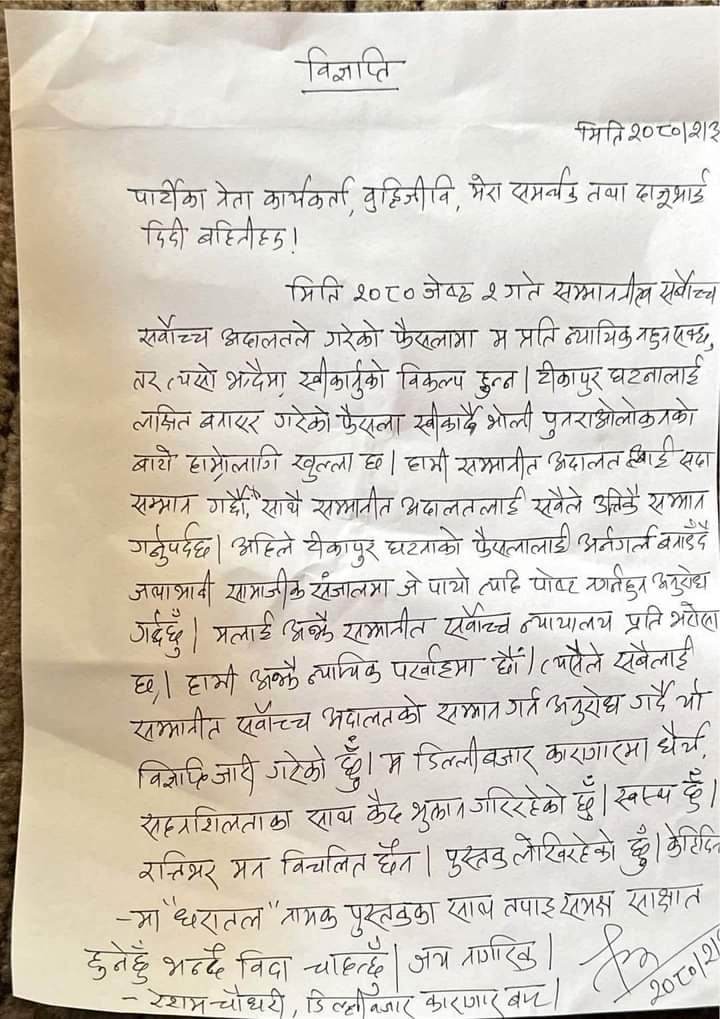 विज्ञप्ति
मिति २०८०।२।३
पार्टीका नेता कार्यकर्ता, वुद्धिजीवि, मेरा समर्थक तथा दाजूभाई
दिदी बहिनीहरु!
मिति २०८० जेष्ठ २ गते सम्माननीय सर्वोच्च
सर्वोच्च अदालतले गरेको फैसलामा म प्रति न्यायिक नहुन सक्छ,
तर त्यसो भन्दैमा स्वीकार्नुको विकल्प हुन्न। टीकापुर घटनालाई
लक्षित बनाएर गरेको फैसला स्वीकार्दै भोली पुनराओलोकनको
बाटो हाम्रोलागि खुल्ला छ। हामी सम्मानीत अदालत लाई सदा
सम्मान गर्छौं, साथै सम्मानीत अदालतलाई सवैले उत्तिकै सम्मान
गर्नुपर्दछ। अहिले टीकापुर घटनाको फैसलालाई अर्नगर्ल बनाउँदै
जथाभावी सामाजीक संजालमा जे पायो त्यहि पोष्ट नगर्नहुन अनुरोध
गर्दछुँ। मलाई अझै सम्मानीत सर्वोच्च न्यायालय प्रति भरोसा
छ,। हामी अझै न्यायिक पर्खाइमा छौं। त्यसैले सबैलाई
सम्मानीत सर्वोच्च अदालतको सम्मान गर्न अनुरोध गर्दै यो
विज्ञप्ति जारी गरेको छुँ। म डिल्लीबजार कारागारमा धैर्य,
सहनशिलताका साथ कैद भुक्तान गरिरहेको छुँ। स्वस्थ छुँ।
रत्तिभर मन विचलित छैन। पुस्तक लेखिरहेको छुँ। केहिदिन
-मा "धरातल" नामक पुस्तकका साथ तपाइ समक्ष साक्षात
हुनेछुँ भन्दै विदा चाहन्छुँ। जय नागरिक।
- रेशम चौधरी, डिल्लीबजार कारागार बाट।
२०८०।२।